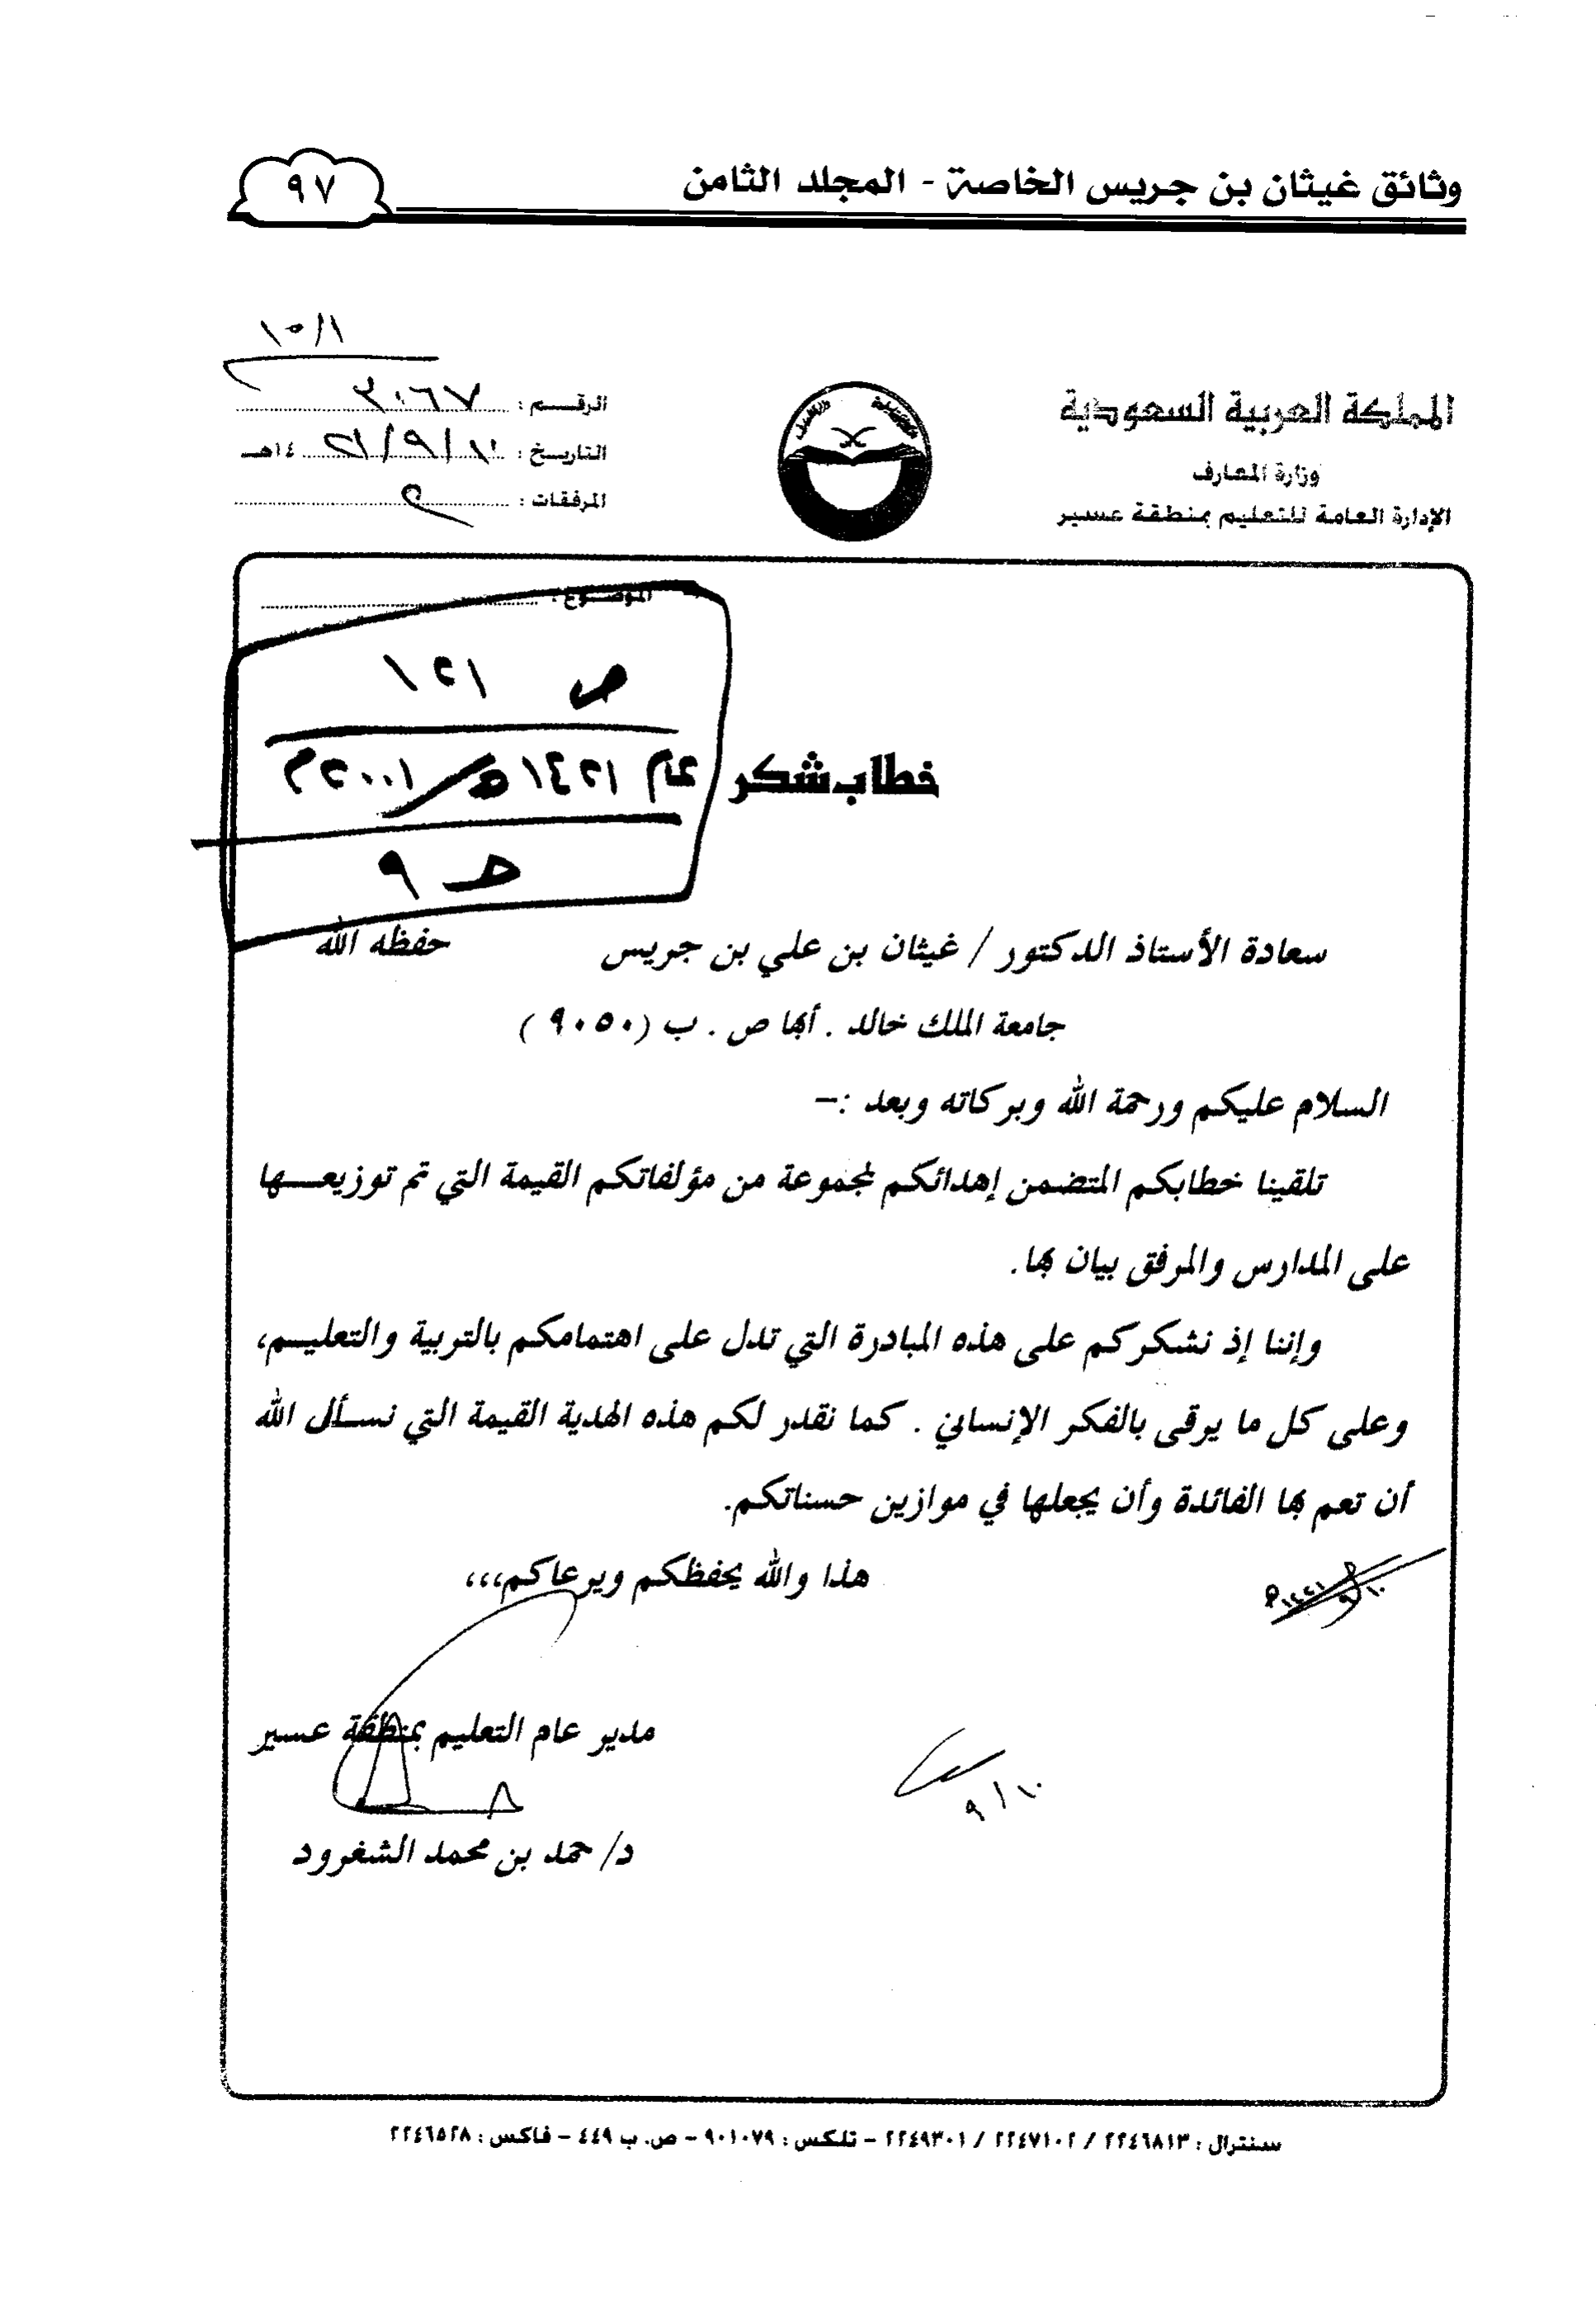 وثائق غيثان بن جريس الخاصة - المجلد الثامن
٩٧
المملكة العربية السعودية
وزارة المعارف
الإدارة العامة للتعليم بمنطقة عسير
١٥/١
الرقـــم : ٣٠٦٧
التاريـخ : ٢١/٩/١٠ ١٤هـ
المرفقات :
الموضــوع :
ص ١٢١
عام ١٤٢١هـ/٢٠٠١م
حـ ٩
خطاب شكر
سعادة الأستاذ الدكتور / غيثان بن علي بن جريس حفظه الله
جامعة الملك خالد . أبها ص . ب (٩٠٥٠)
السلام عليكم ورحمة الله وبركاته وبعد :–
تلقينا خطابكم المتضمن إهدائكم لمجموعة من مؤلفاتكم القيمة التي تم توزيعـــها
على المدارس والمرفق بيان بها.
وإننا إذ نشكركم على هذه المبادرة التي تدل على اهتمامكم بالتربية والتعليـــم،
وعلى كل ما يرقى بالفكر الإنساني . كما نقدر لكم هذه الهدية القيمة التي نســأل الله
أن تعم بها الفائدة وأن يجعلها في موازين حسناتكم.
هذا والله يحفظكم ويرعاكم،،،
مدير عام التعليم بمنطقة عسير
٩/١٠
د/ حمد بن محمد الشغرود
سنترال : ٢٢٤٦٨١٣ / ٢٢٤٧١٠٢ / ٢٢٤٩٣٠١ – تلكس : ٩٠١٠٧٩ – ص. ب ٤٤٩ – فاكس : ٢٢٤٦٥٢٨